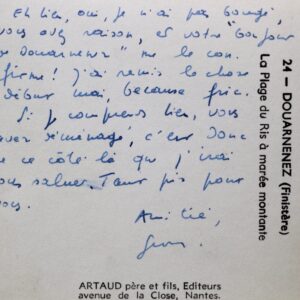 Eh bien, oui, je n'ai pas bougé,
vous avez raison, et votre "bonjour
de Douarnenez" me le con-
firme! J'ai remis la chose
début mai, because fric.
Si je comprends bien, vous
avez déménagé, c'est donc
de ce côté là que j'irai
vous saluer. Tant pis pour
vous.
Amitié,
24 — DOUARNENEZ (Finistère)
La Plage du Ris à marée montante
ARTAUD père et fils, Editeurs
avenue de la Close, Nantes.